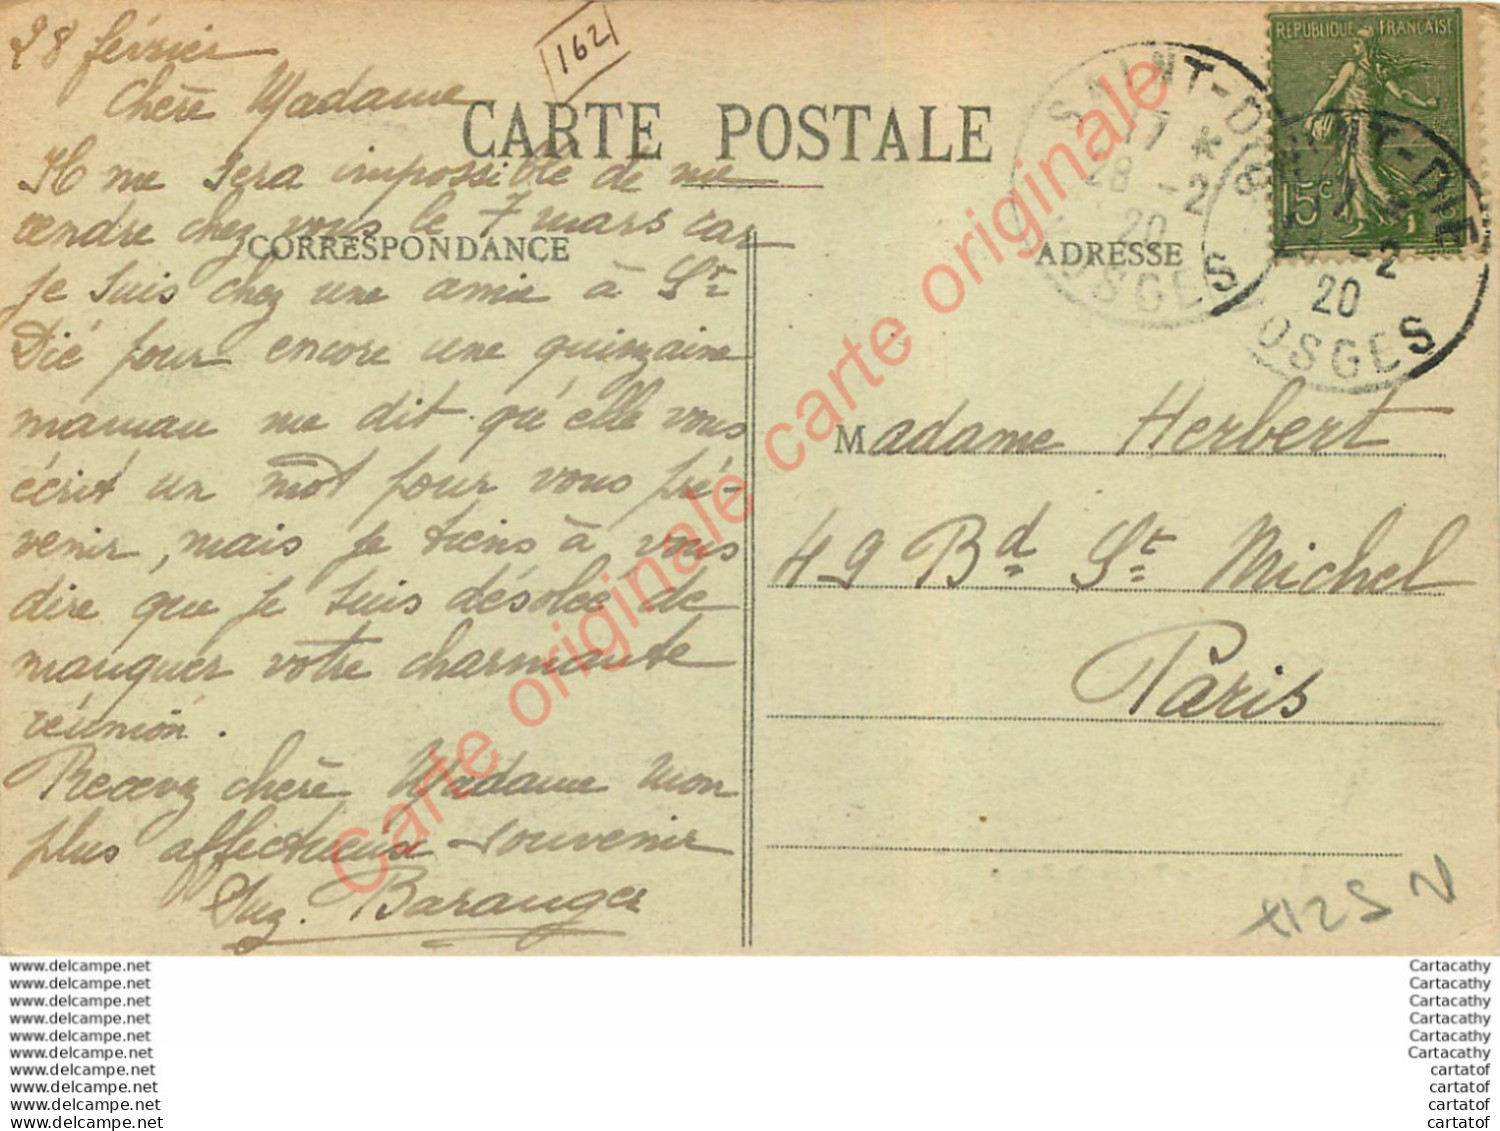 28 février
162
Chère Madame
CARTE POSTALE
Il me sera impossible de me
rendre chez vous le 7 mars car
CORRESPONDANCE
je suis chez une amie à St
Dié pour encore une quinzaine
maman me dit qu'elle vous
écrit un mot pour vous pré-
venir, mais je tiens à vous
dire que je suis désolée de
manquer votre charmante
réunion.
Recevez chère Madame mon
plus affectueux souvenir
Suz. Baranger
REPUBLIQUE FRANÇAISE
15c
SAINT-DIÉ
17 *
28 -2
20
VOSGES
SAINT-DIÉ
-2
20
OSGES
ADRESSE
Madame Herbert
49 Bd St Michel
Paris
Carte originale carte originale carte originale
www.delcampe.net
www.delcampe.net
www.delcampe.net
www.delcampe.net
www.delcampe.net
www.delcampe.net
www.delcampe.net
www.delcampe.net
www.delcampe.net
www.delcampe.net
Cartacathy
Cartacathy
Cartacathy
Cartacathy
Cartacathy
Cartacathy
cartatof
cartatof
cartatof
cartatof